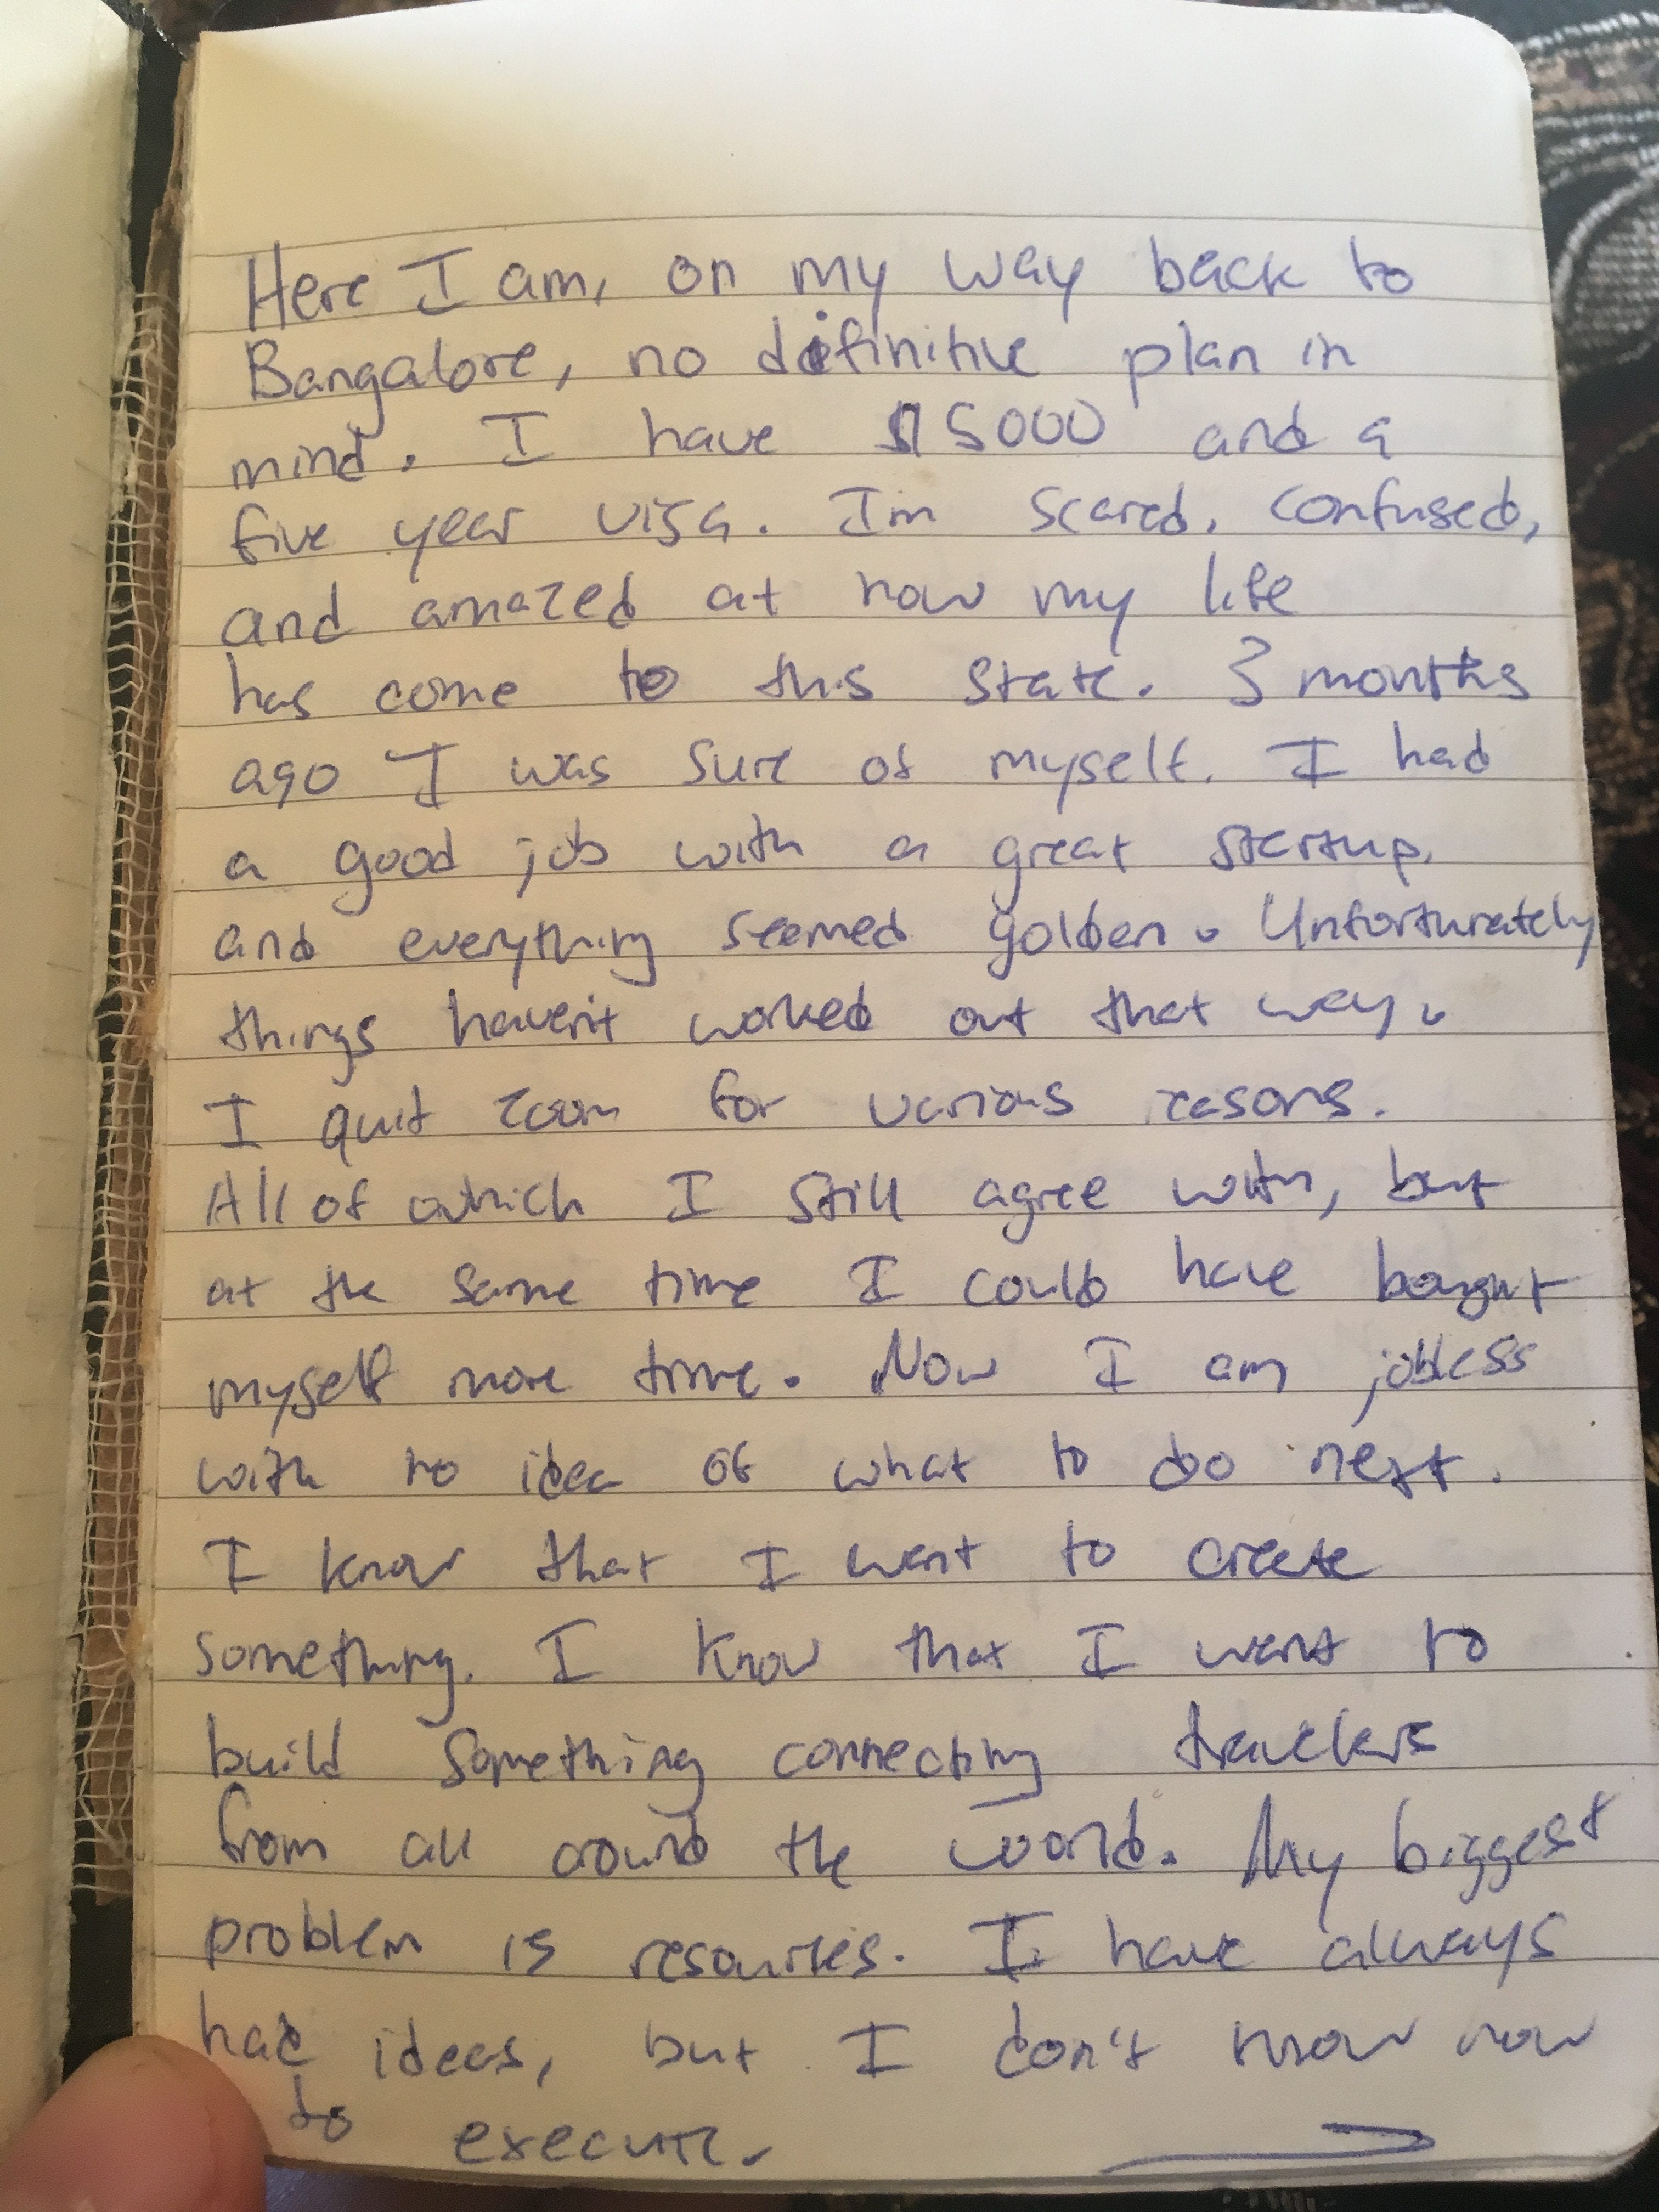 Here I am, on my way back to
Bangalore, no definitive plan in
mind. I have $15000 and a
five year visa. I'm scared, confused,
and amazed at how my life
has come to this state. 3 months
ago I was sure of myself. I had
a good job with a great startup,
and everything seemed golden. Unfortunately
things haven't worked out that way.
I quit zoom for various reasons.
All of which I still agree with, but
at the same time I could have bought
myself more time. Now I am jobless
with no idea of what to do next.
I know that I want to create
something. I know that I want to
build something connecting travelers
from all around the world. My biggest
problem is resources. I have always
had ideas, but I don't know how
to execute.